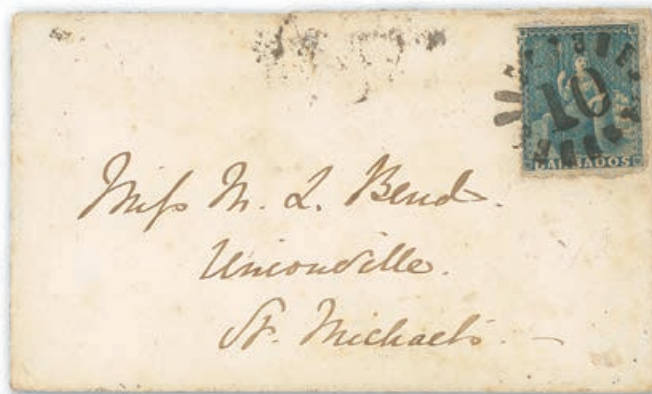 10
BARBADOS
Miss N. L. Bend.
Unionville.
St. Michaels. —